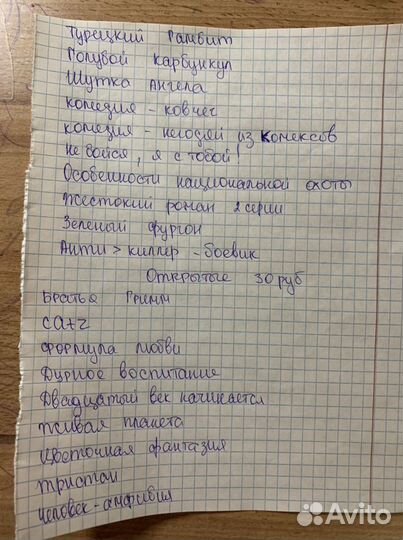 Турецкий Гамбит
Голубой карбункул
Шутка Ангела
комедия - ковчег
комедия - негодяй из комексов
Не бойся, я с тобой!
Особенности национальной охоты
Жестокий роман 2 серии
Зеленый фургон
Анти > киллер - боевик
Открытые 30 руб
Братья Гримм
Формула любви
Дурное воспитание
Двадцатый век начинается
Живая планета
Цветочная фантазия
Тристан
Человек - амфибия
Avito